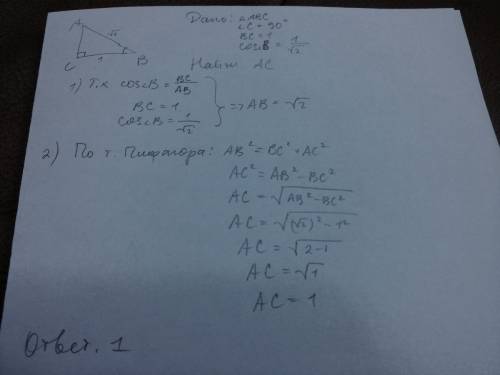 Дано: △ABC
∠C = 90°
BC = 1
cos∠B = 1/√2
Найти AC
A
√2
C
1
B
1) Т.к cos∠B = BC/AB
BC = 1
cos∠B = 1/√2
=> AB = √2
2) По т. Пифагора: AB² = BC² + AC²
AC² = AB² - BC²
AC = √(AB² - BC²)
AC = √((√2)² - 1²)
AC = √(2-1)
AC = √1
AC = 1
Ответ. 1